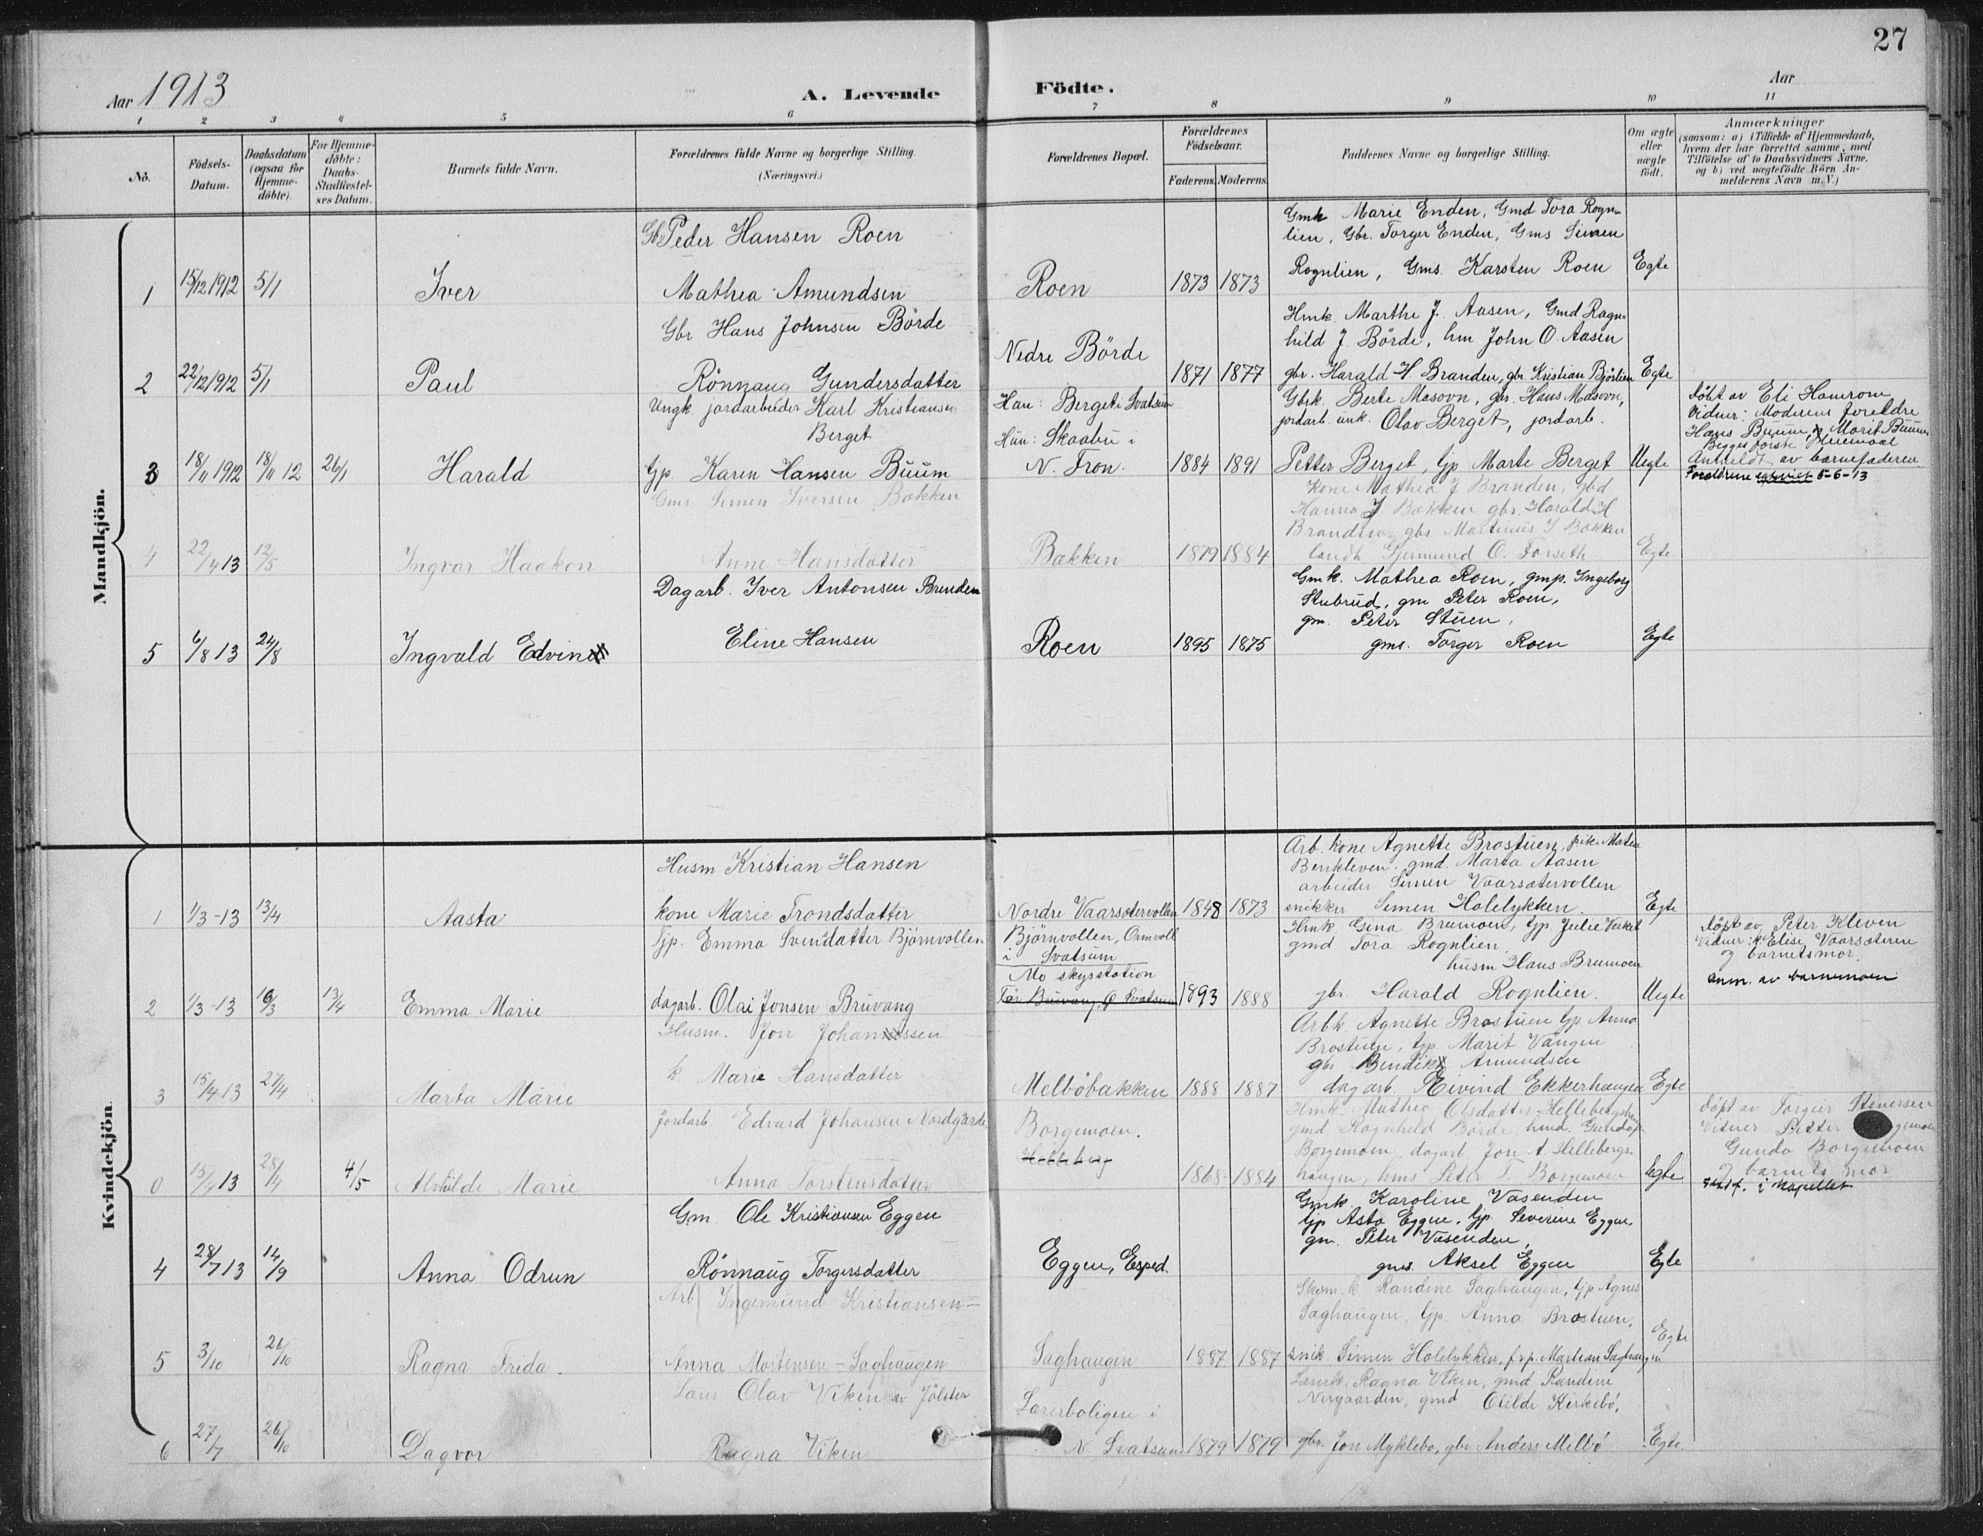 27
Aar 1913
A. Levende Födte.
Aar
1 2 3 4 5 6 7 8 9 10 11
No.
Födsels-Datum.
Daabsdatum (ogsaa for Hjemme-döbte).
For Hjemme-döbte: Daabs-Stadfæstel-ses Datum.
Barnets fulde Navn.
Forældrenes fulde Navne og borgerlige Stilling. (Næringsvei.)
Forældrenes Bopæl.
Forældrenes Födselsaar.
Faderens. Moderens.
Faddernes Navne og borgerlige Stilling.
Om ægte eller uægte födt.
Anmærkninger
(saasom: a) i Tilfælde af Hjemmedaab,
hvem der har forrettet samme, med
Tilföielse af to Daabsvidners Navne.
og b) ved uægtefödte Börn An-
melderens Navn m. V.)
Mandkjön.
Gb. Peder Hansen Roen
Gmk Marie Enden, Gmd Tora Rogn-
lien, Gbr. Torger Enden, Gms Simen
1 15/12 1912 5/1 Iver Mathea Amundsen Roen 1873 1873 Rognlien, Gms. Karsten Roen Egte
Gbr Hans Johnsen Börde
Hmk. Marthe J. Aasen, Gmd Ragn-
hild J. Börde, hm John O. Aasen
2 22/12 1912 5/1 Paul Rönnaug Gundersdatter Nedre Börde 1871 1877 gbr. Harald H Branden, gbr Kristian Björlien Egte
Ungk jordarbeider Karl Kristiansen
Berget
Han: Berget i Svatsum
Hun: Skaabu i
Gbrk. Berte Masovn, gbr. Hans Masovn,
jordarb. unk. Olav Berget, jordarb.
döbt av Eli Hamrom
Vidner: Moderens foreldre
Hans Buum, Marit Buum
Begges förste
3 18/11 1912 18/11 12 26/1 Harald Gp. Karen Hansen Buum N. Fron. 1884 1891 Petter Berget, Gp Marte Berget Uegte Anmeldt av barnefaderen
Foreldrene egteviet 5-6-13
Gms Simen Iversen Bakken
kone Mathea J Branden, gbd
Hanna J Bakken gbr. Harald H
Branden gbs Martinus I Bakken
4 22/4 13 12/5 Ingvar Haakon Anne Hansdatter Bakken 1879 1884 landh Gjermund O. Forseth Egte
Dagarb. Iver Antonsen Brenden
Gmk. Mathea Roen, gmp. Ingeborg
Stubrud, gm Peter Roen,
gm. Peter Stuen,
5 6/8 13 24/8 Ingvald Edvin Eline Hansen Roen 1895 1875 gms. Torger Roen Egte
Kvindekjön.
Husm Kristian Hansen
Arb. kone Agnette Brostuen, pike Matea
Benkleven. gmd. Marta Aasen
arbeider Simen Vaarsætervollen
1 1/3-13 13/4 Aasta kone Marie Trondsdatter Nordre Vaarsætervollen 1848 1873 snikker Simen Holelykken. Egte
Tjp. Emma Svendatter Björnvollen
Björnvollen, Ormvoll
i Svatsum
Mo skysstation
Hmk Gina Brumoen, Gp. Julie Verket
gmd Tora Rognlien
husm Hans Brumoen
döpt av Peter Kleven
Vidner: k Elise Vaarsæteren
og barnetsmor.
anm. av barnemoren
2 1/3-13 16/3 13/4 Emma Marie dagarb. Olai Jonsen Bruvang 1893 1888 gbr. Harald Rognlien. Uegte
Husm. Jon Johanssen
Arbk. Agnette Brostuen Gp Anna
Brostuen, Gp. Marit Vangen
gbr Bendik Amundsen
3 15/4 13 27/4 Marta Marie k Marie Hansdatter Melböbakken 1888 1887 dagarb Eivind Ekkerhaugen Egte
Jordarb Edvard Johansen Nordgårde
Borgemoen.
Helleberg
Hmk. Mathea Olsdatter Helleberg
gmd Ragnhild Börde, hmd. Gunda
Borgemoen, dagarb Jon A Helleberg-
döpt av Torgeir Stenersen
Vidner Petter
Gunda Borgemoen
og barnets mor
0 15/4 13 28/4 4/5 Alvilde Marie Anna Torstensdatter 1868 1884 haugen, hms Peter T. Borgemoen Egte
Stadf. i kapellet
Gm. Ole Kristiansen Eggen
Gmk Karoline Vasenden
Gp Asta Eggen, Gp. Severine Eggen.
gm. Peter Vasenden,
4 28/7 13 14/9 Anna Odrun Rönnaug Torgersdatter Eggen, Esped. gms. Aksel Eggen Egte
Arb Ingemund Kristiansen
Skom. k. Randine Saghaugen, Gp. Agnes
Saghaugen, Gp. Anna Brostuen,
5 3/10 26/10 Ragna Frida. Anna Mortensen-Saghaugen Saghaugen 1887 1887 snik. Simen Holelykken, f.r.p. Martian Saghaugen Egte
Lærer Olav Viken av Jölster
Lærerboligen i
Lærerk. Ragna Viken, gmd Randine
Nergaarden, gmd Otilde Kirkebö,
6 27/7 26/10 Dagvor Ragna Viken N. Svatsum 1879 1879 gbr. Jon Myklebo, gbr Anders Melbö Egte